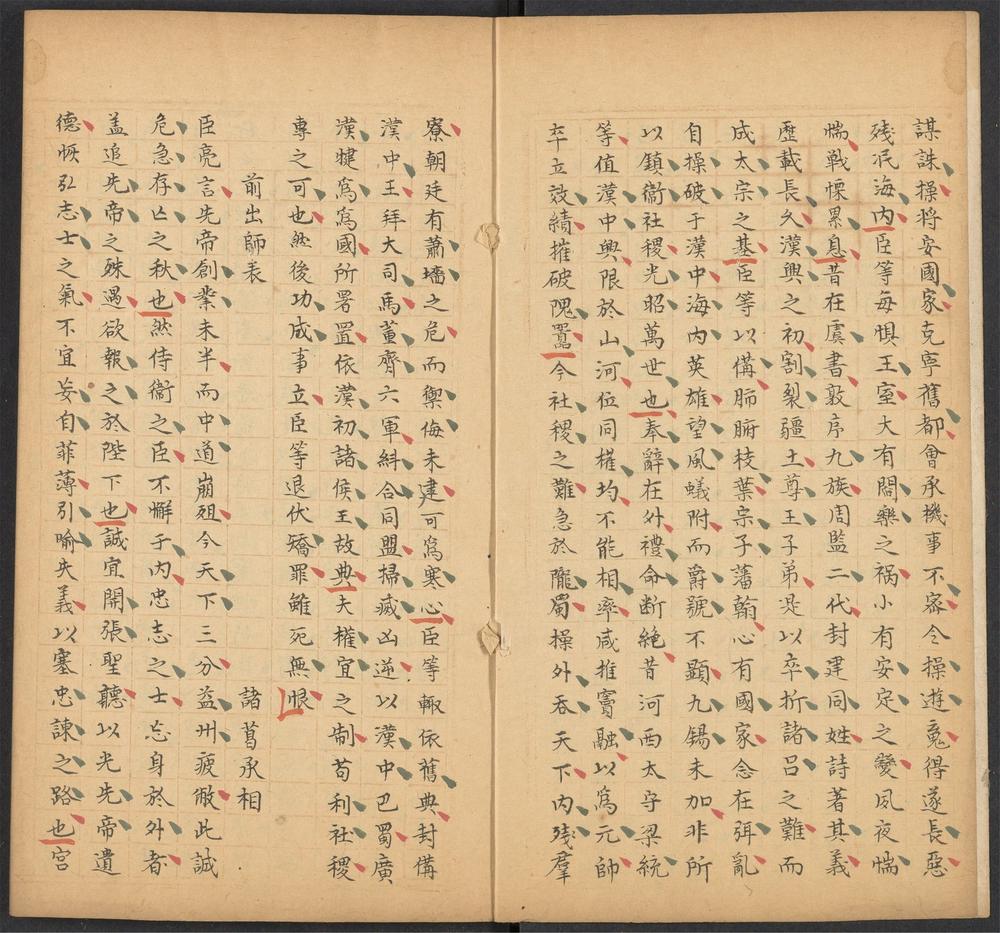 謀誅操將安國家克寧舊都會承機事不密令操遊䰟得遂長惡
殘泯海內臣等每懼王室大有閻樂之禍小有安定之變夙夜惴
惴戰慄累息昔在虞書敦序九族周監二代封建同姓詩著其義
歷載長久漢興之初割裂疆土尊王子弟是以卒折諸呂之難而
成太宗之基臣等以備肺腑枝葉宗子藩翰心有國家念在弭亂
自操破于漢中海內英雄望風蟻附而爵號不顯九錫未加非所
以鎮衞社稷光昭萬世也奉辭在外禮命斷絕昔河西太守梁統
等值漢中興限於山河位同權均不能相率咸推竇融以爲元帥
卒立效績摧破隗囂今社稷之難急於隴蜀操外吞天下內殘羣
寮朝廷有蕭墻之危而禦侮未建可爲寒心臣等輙依舊典封備
漢中王拜大司馬董齊六軍糾合同盟掃滅凶逆以漢中巴蜀廣
漢犍爲爲國所署置依漢初諸侯王故典夫權宜之制苟利社稷
專之可也然後功成事立臣等退伏矯罪雖死無恨
前出師表
諸葛承相
臣亮言先帝創業未半而中道崩殂今天下三分益州疲敝此誠
危急存亡之秋也然侍衞之臣不懈于內忠志之士忘身於外者
盖追先帝之殊遇欲報之於陛下也誠宜開張聖聽以光先帝遺
德恢弘志士之氣不宜妄自菲薄引喻失義以塞忠諫之路也宮